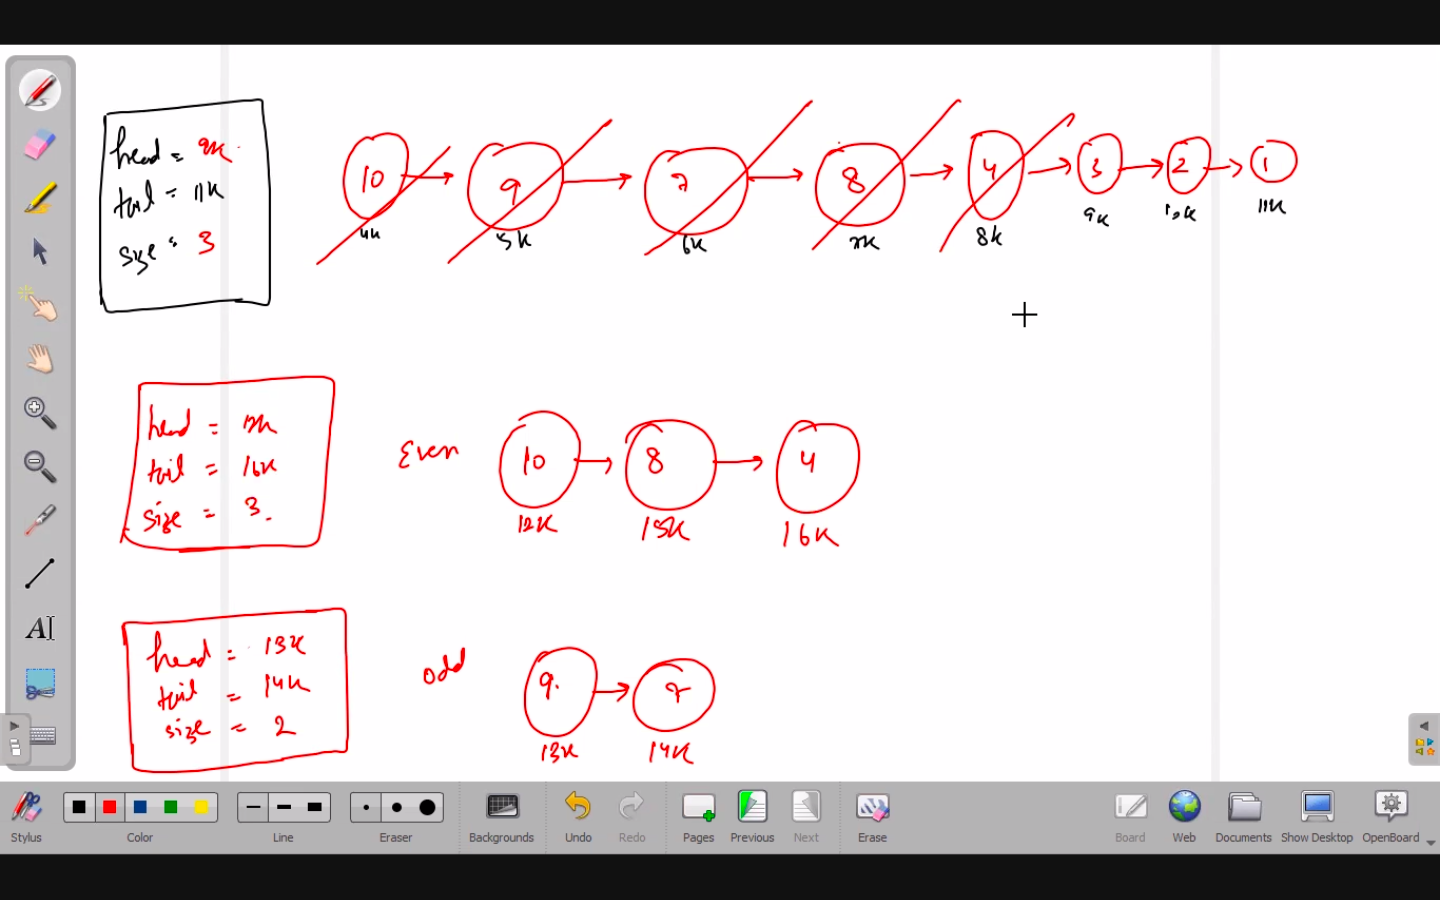 head = 9K
tail = 11K
size = 3
10 9 7 8 4 3 2 1
4K 5K 6K 7K 8K 9K 10K 11K
head = 12K
tail = 16K
size = 3
Even 10 8 4
12K 15K 16K
head = 13K
tail = 14K
size = 2
odd 9 7
13K 14K
A
Stylus Color Line Eraser Backgrounds Undo Redo Pages Previous Next Erase Board Web Documents Show Desktop OpenBoard